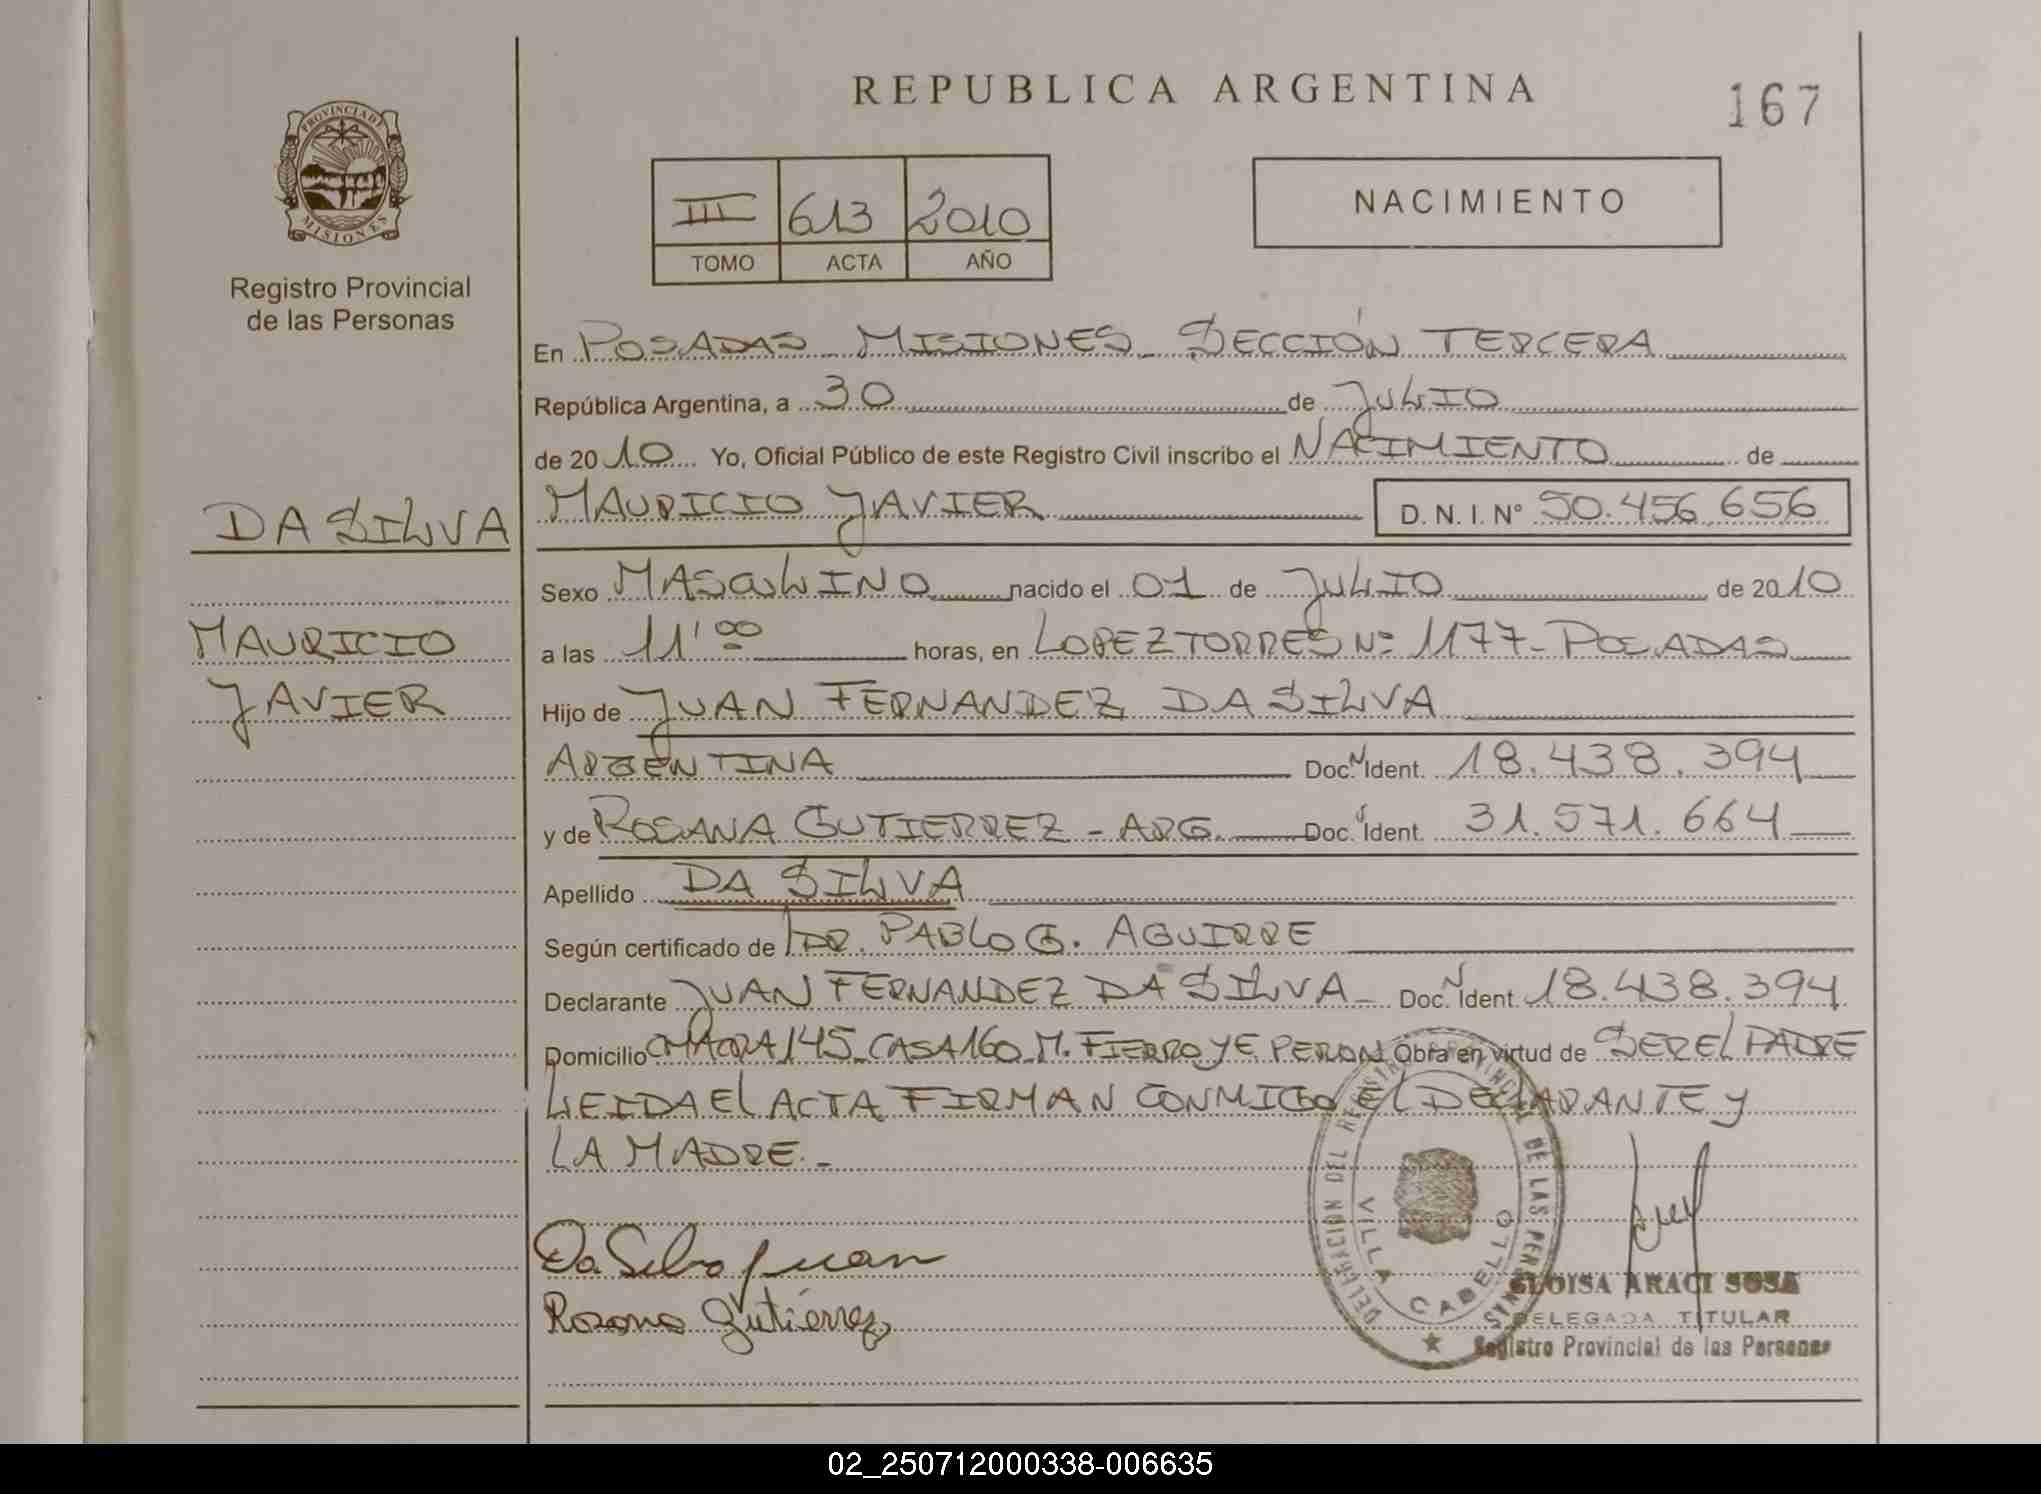 REPUBLICA ARGENTINA
167
PROVINCIA DE MISIONES
Registro Provincial
de las Personas
III 613 2010
TOMO ACTA AÑO
NACIMIENTO
En POSADAS - MISIONES - SECCIÓN TERCERA
República Argentina, a 30 de JULIO
de 2010 Yo, Oficial Público de este Registro Civil inscribo el NACIMIENTO de
DA SILVA
MAURICIO JAVIER
D. N. I. N° 50.456.656
Sexo MASCULINO nacido el 01 de JULIO de 2010
MAURICIO
a las 11'00 horas, en LOPEZ TORRES Nº 1177 - POSADAS
JAVIER
Hijo de JUAN FERNANDEZ DA SILVA
ARGENTINA Doc. Ident. 18.438.394
y de ROSANA GUTIERREZ - ARG. Doc. Ident. 31.571.664
Apellido DA SILVA
Según certificado de DR. PABLO G. AGUIRRE
Declarante JUAN FERNANDEZ DA SILVA - Doc. Ident. 18.438.394
Domicilio CHACRA 145 CASA 160 M. FIERRO Y E PERON Obra en virtud de SER EL PADRE
LEIDA EL ACTA FIRMAN CONMIGO EL DECLARANTE Y
LA MADRE. -
Da Silva Juan
Rosana Gutiérrez
DELEGACION DEL REGISTRO PROVINCIAL DE LAS PERSONAS
VILLA CABELLO
ELOISA ARACI SOSA
DELEGADA TITULAR
Registro Provincial de las Personas
02_250712000338-006635